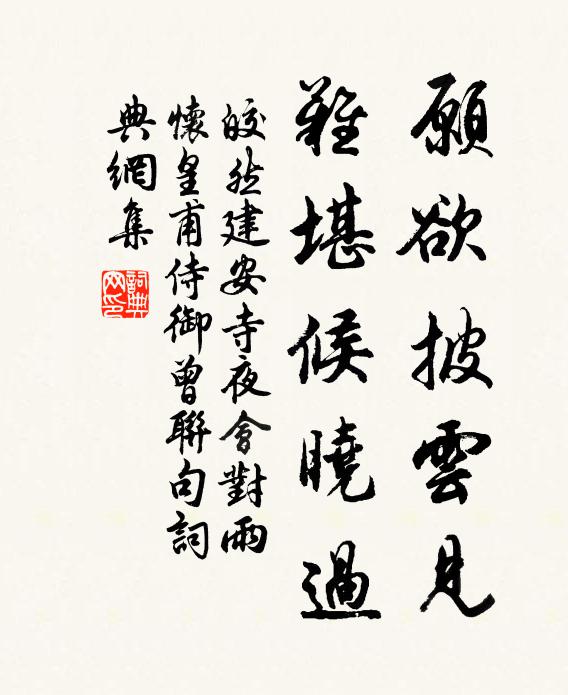 願欲披雲見
難堪候曉過
皎然建安寺夜會對雨
懷皇甫侍御曾聯句詞
典網集
詞典網印